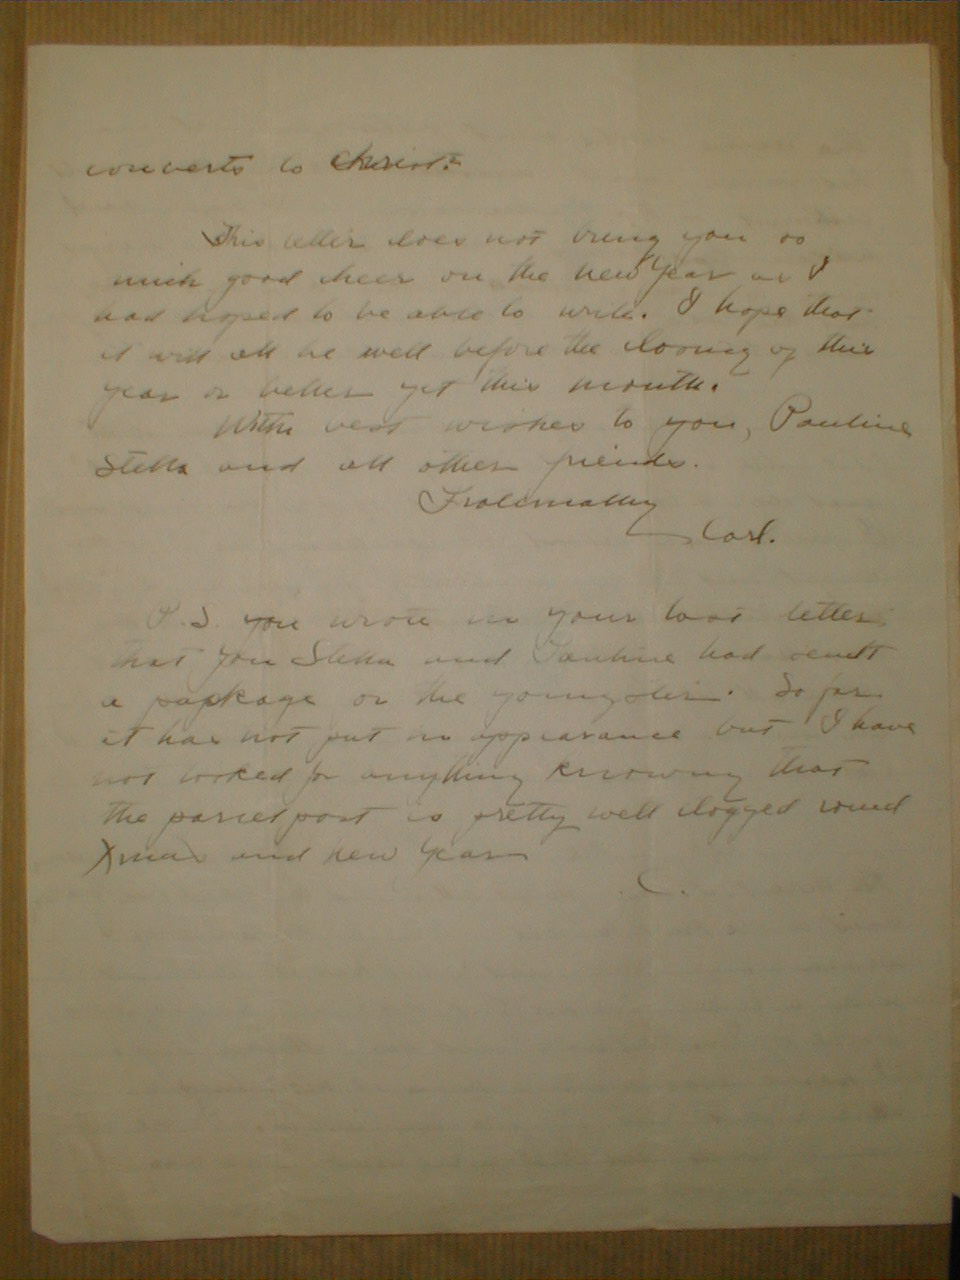 converts to Christ?
This letter does not bring you so
much good cheer on the new Year as I
had hoped to be able to write. I hope that
it will all be well before the closing of this
year or better yet this month.
With best wishes to you, Pauline
Stella and all other friends.
Fraternally
Carl.
P.S. you wrote in your last letter
that you Stella and Pauline had sendt
a papkage or the youngster. So far
it has not put in appearance but I have
not looked for anything knowing that
the parcel post is pretty well clogged round
Xmas and new Year
C.